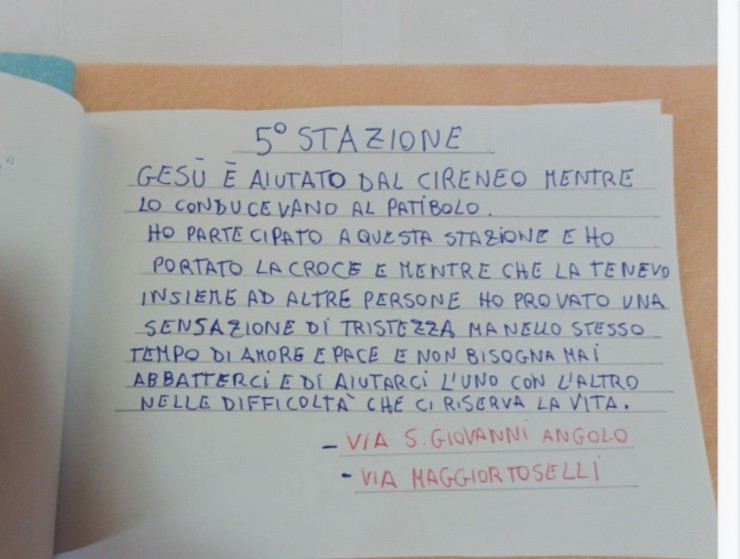 5° STAZIONE
GESÙ È AIUTATO DAL CIRENEO MENTRE
LO CONDUCEVANO AL PATIBOLO.
HO PARTECIPATO A QUESTA STAZIONE E HO
PORTATO LA CROCE E MENTRE CHE LA TENEVO
INSIEME AD ALTRE PERSONE HO PROVATO UNA
SENSAZIONE DI TRISTEZZA MA NELLO STESSO
TEMPO DI AMORE E PACE E NON BISOGNA MAI
ABBATTERCI E DI AIUTARCI L'UNO CON L'ALTRO
NELLE DIFFICOLTÀ CHE CI RISERVA LA VITA.
- VIA S. GIOVANNI ANGOLO
- VIA MAGGIOR TOSELLI